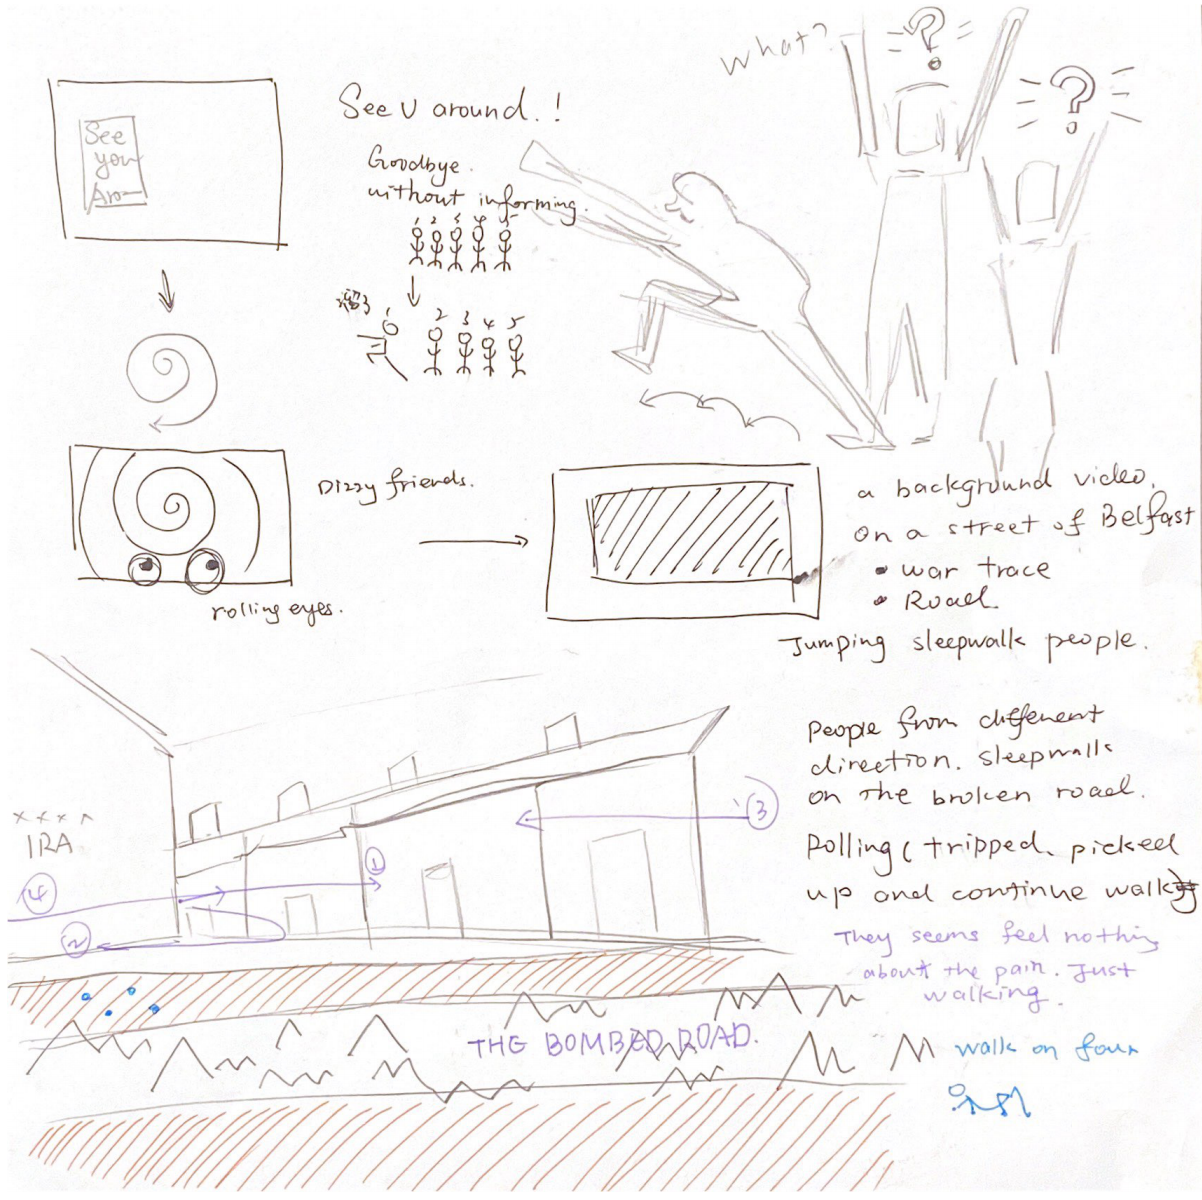 What?
See
you
Aro
See U around.!
Goodbye.
without informing.
1 2 3 4 5
溜了
1 2 3 4 5
Dizzy friends.
rolling eyes.
a background video.
on a street of Belfast
• war trace
• Road.
Jumping sleepwalk people.
People from different
direction. sleepwalk
on the broken road.
Rolling ( tripped. picked
up and continue walk)
They seems feel nothing
about the pain. Just
walking.
xxxx
IRA
①
②
③
④
THE BOMBED ROAD.
walk on four